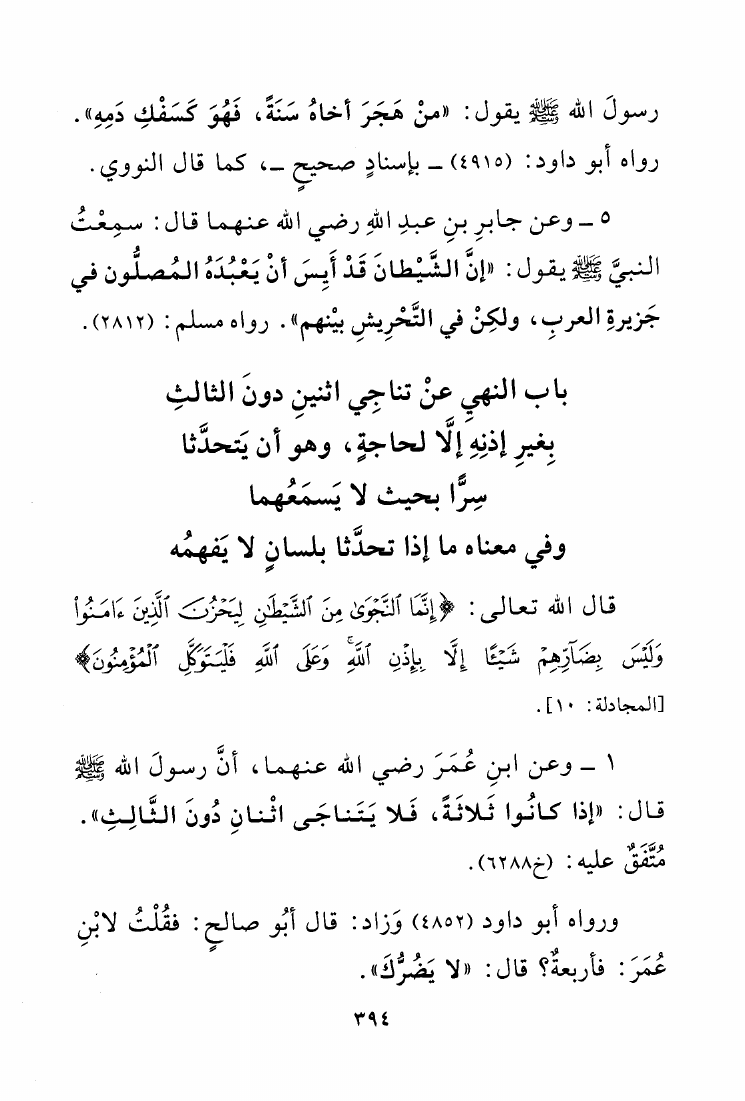 رسولَ الله ﷺ يقول: «منْ هَجَرَ أخاهُ سَنَةً، فَهُوَ كَسَفْكِ دَمِهِ».
رواه أبو داود: (٤٩١٥) ـ بإسنادٍ صحيحٍ ـ، كما قال النووي.
٥ ـ وعن جابرِ بنِ عبدِ اللهِ رضي الله عنهما قال: سمِعْتُ
النبيَّ ﷺ يقول: «إنَّ الشَّيْطانَ قَدْ أَيِسَ أنْ يَعْبُدَهُ المُصلُّون في
جَزيرةِ العربِ، ولكِنْ في التَّحْرِيشِ بيْنهم». رواه مسلم: (٢٨١٢).
باب النهيِ عنْ تناجِي اثنينِ دونَ الثالثِ
بِغيرِ إذنِهِ إلَّا لحاجةٍ، وهو أن يَتحدَّثا
سِرًّا بحيث لا يَسمَعُهما
وفي معناه ما إذا تحدَّثا بلسانٍ لا يَفهمُه
قال الله تعالى: ﴿إِنَّمَا ٱلنَّجْوَىٰ مِنَ ٱلشَّيْطَٰنِ لِيَحْزُنَ ٱلَّذِينَ ءَامَنُوا۟
وَلَيْسَ بِضَآرِّهِمْ شَيْـًٔا إِلَّا بِإِذْنِ ٱللَّهِ ۚ وَعَلَى ٱللَّهِ فَلْيَتَوَكَّلِ ٱلْمُؤْمِنُونَ﴾
[المجادلة: ١٠].
١ ـ وعن ابنِ عُمَرَ رضي الله عنهما، أنَّ رسولَ الله ﷺ
قال: «إذا كانُوا ثَلاثَةً، فَلا يَتَناجَى اثْنانِ دُونَ الثَّالِثِ».
مُتَّفَقٌ عليه: (خ٦٢٨٨).
ورواه أبو داود (٤٨٥٢) وَزاد: قال أبُو صالحٍ: فقُلْتُ لابْنِ
عُمَرَ: فأربعةٌ؟ قال: «لا يَضُرُّكَ».
٣٩٤